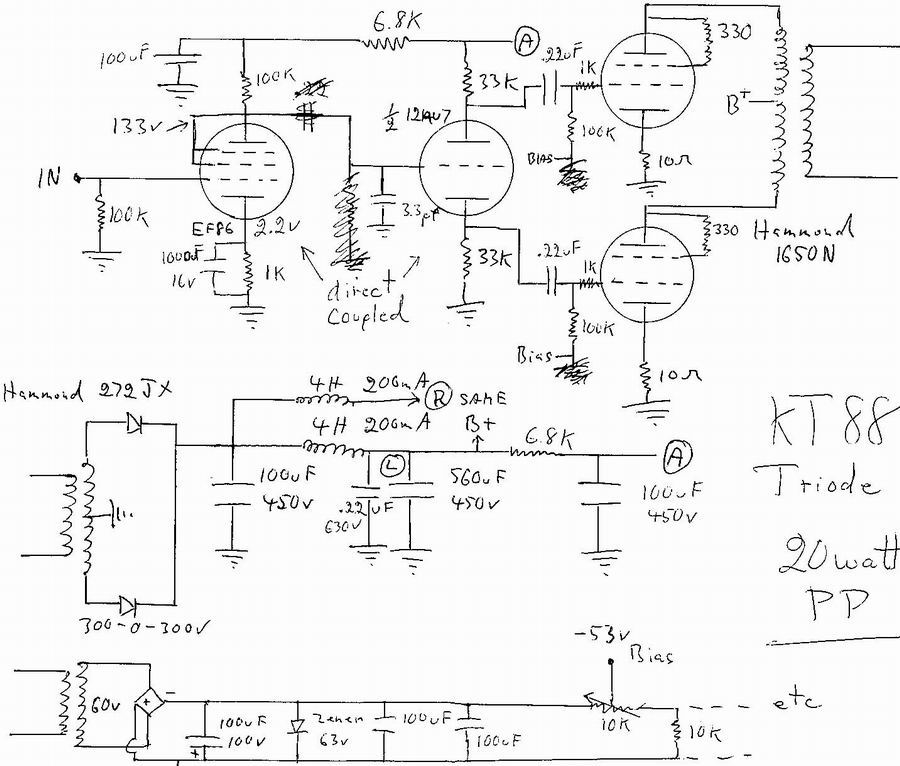 6.8K
A
100uF
100K
33K
.22uF
1K
330
133v
½ 12AU7
B+
100K
BIAS
10Ω
IN
100K
3.3pf
EF86 2.2v
1000uF
16v
1K
33K
.22uF
1K
330
Hammond
1650N
direct
Coupled
100K
Bias
10Ω
Hammond 272JX
4H 200mA R
SAME
B+
4H 200mA
6.8K
A
L
100uF
450v
.22uF
630v
560uF
450v
100uF
450v
KT88
Triode
20watt
PP
300-0-300V
-53v
Bias
60v
+
-
100uF
100v
+
Zener
63v
100uF
100uF
10K
10K
etc